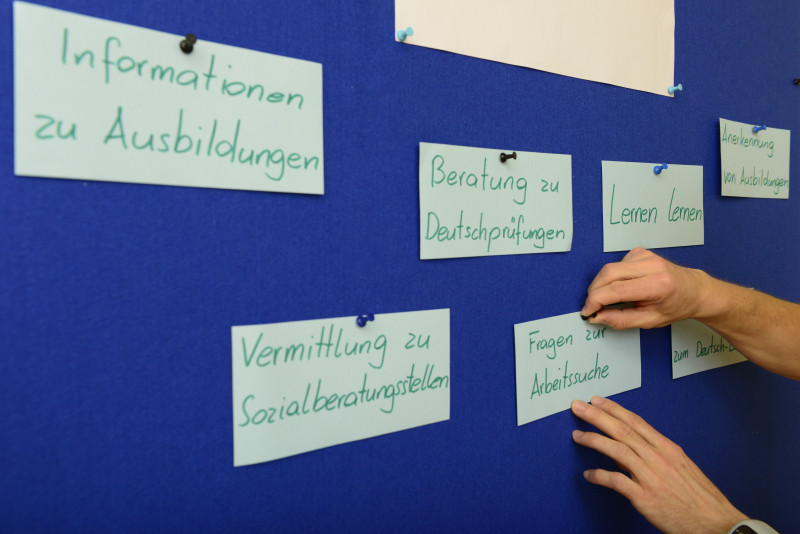 Informationen
zu Ausbildungen
Beratung zu
Deutschprüfungen
Lernen lernen
Anerkennung
von Ausbildungen
Vermittlung zu
Sozialberatungsstellen
Fragen zur
Arbeitssuche
zum